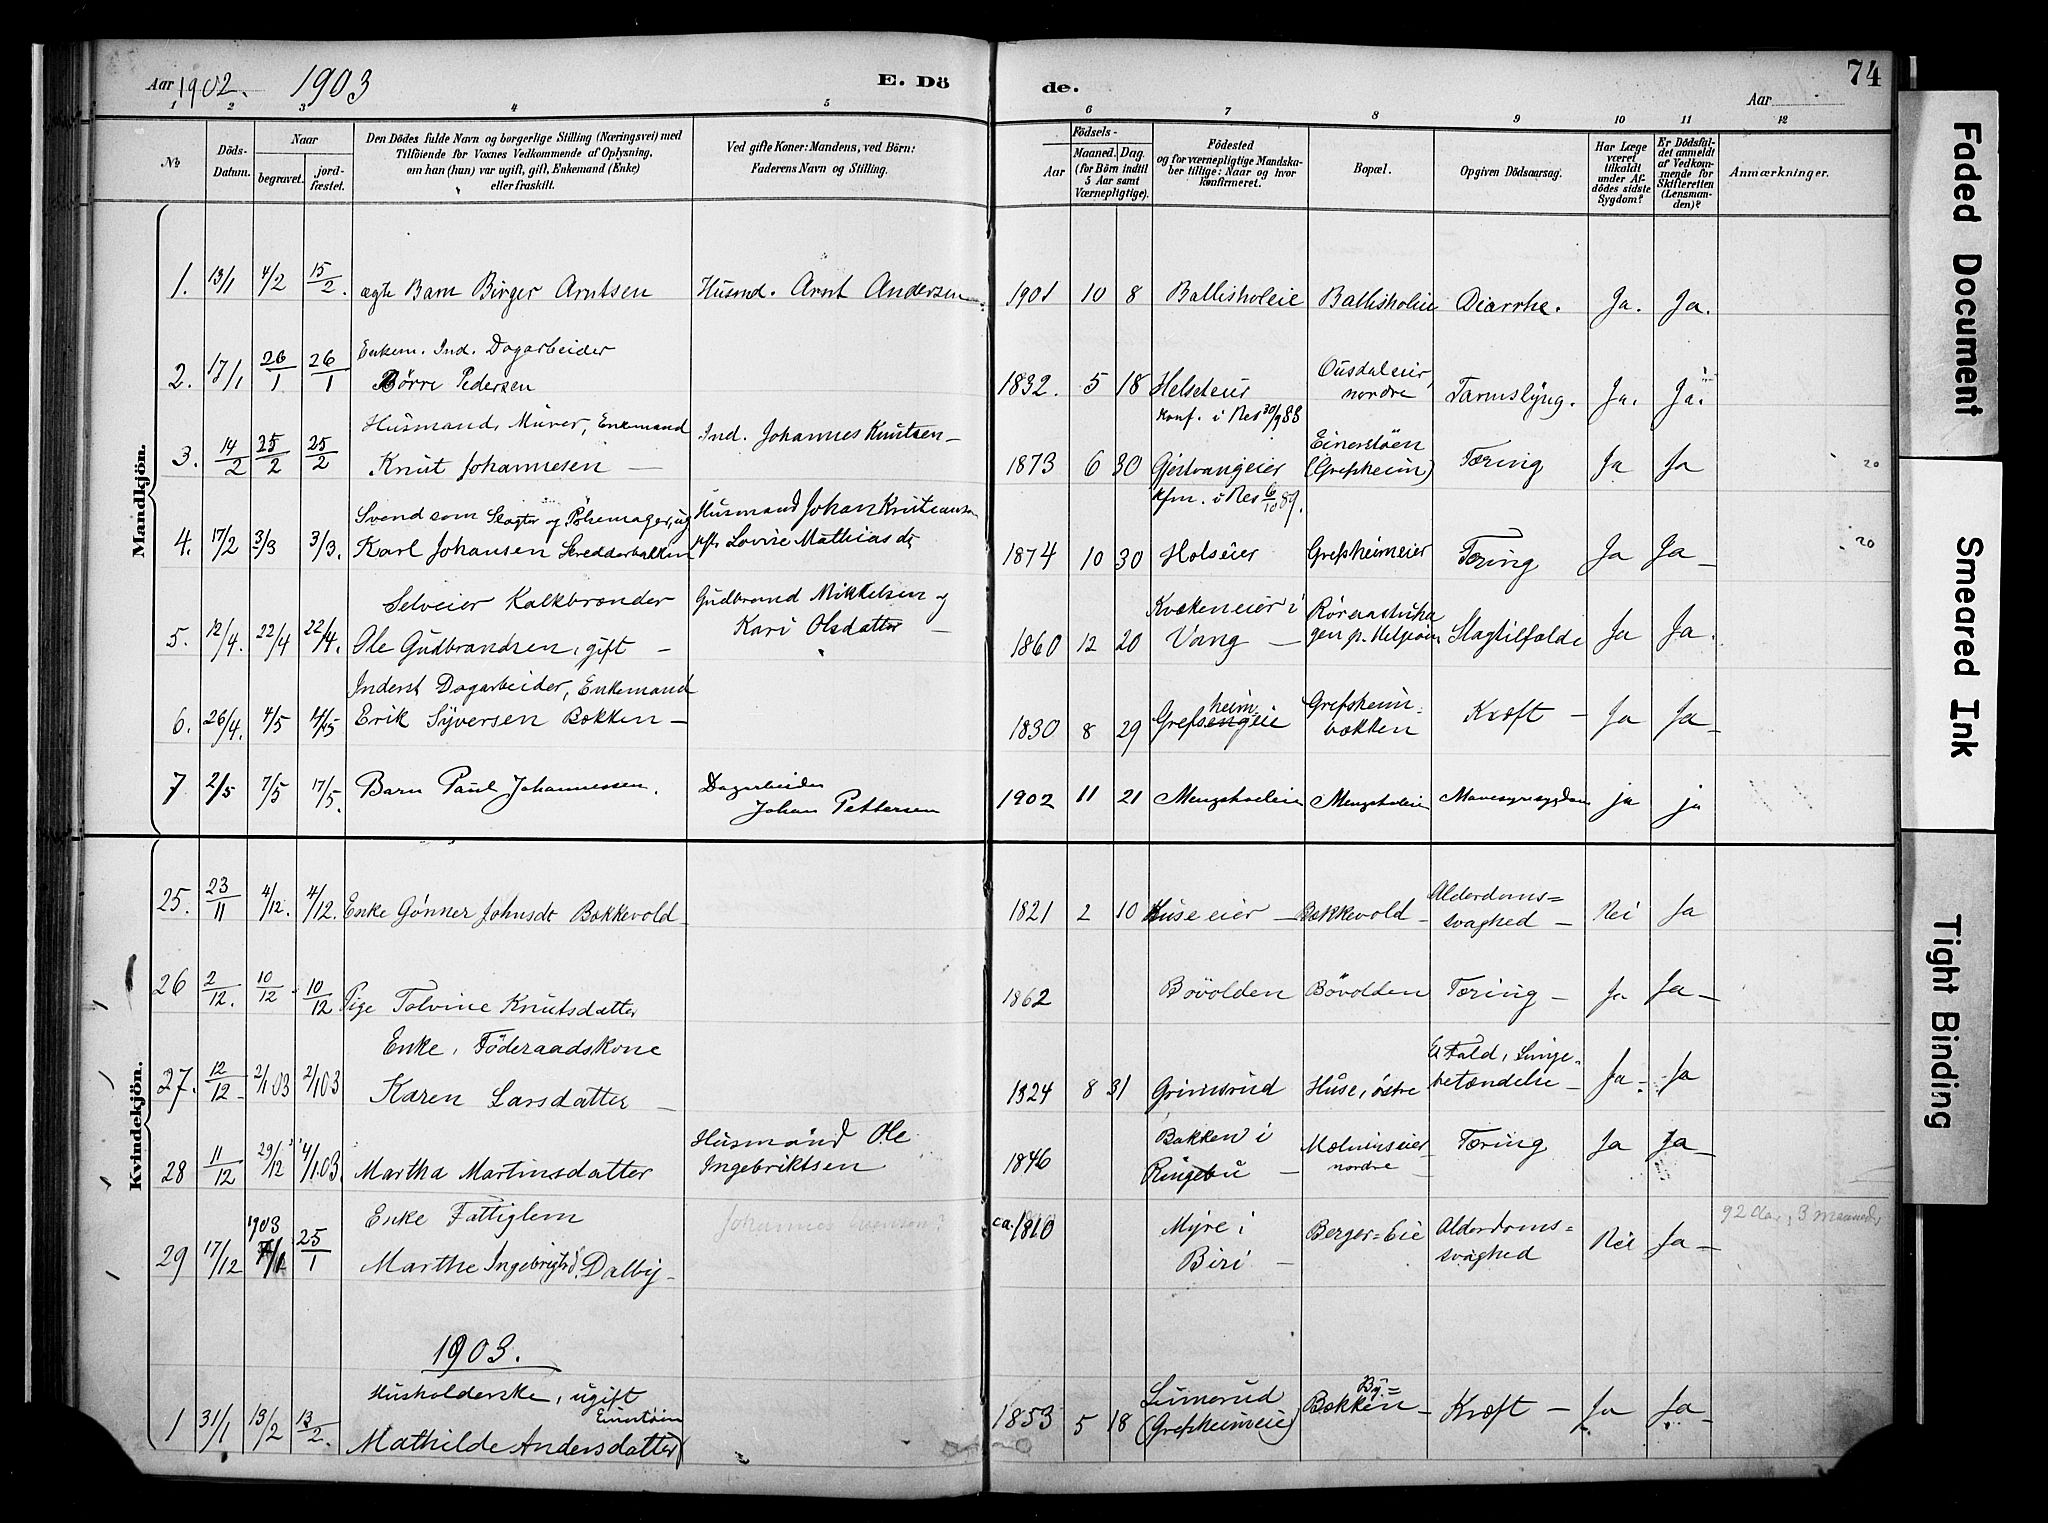 Aar 1902. 1903 E. Dö
de. Aar 74
1 2 3 4 5 6 7 8 9 10 11 12
No
Döds-Datum.
Naar
begravet.
jord-fæstet.
Den Dödes fulde Navn og borgerlige Stilling (Næringsvei) med
Tilföiende for Voxnes Vedkommende af Oplysning,
om han (hun) var ugift, gift, Enkemand (Enke)
eller fraskilt.
Ved gifte Koner: Mandens, ved Börn:
Faderens Navn og Stilling.
Födsels-
Aar
Maaned. Dag.
(for Börn indtil
5 Aar samt
Værnepligtige).
Födested
og for værnepligtige Mandska-
ber tillige: Naar og hvor
konfirmeret.
Bopæl.
Opgiven Dödsaarsag.
Har Læge
været
tilkaldt
under Af-
dödes sidste
Sygdom?
Er Dödsfal-
det anmeldt
af Vedkom-
mende for
Skifteretten
(Lensman-
den)?
Anmærkninger.
Mandkjön.
1. 13/1 4/2 15/2. ægte Barn Birger Arntsen Husmd. Arnt Andersen 1901 10 8 Ballishøleie Ballishøleie Diarrhe. Ja. Ja.
2. 17/1 26/1 26/1 Enkem. Ind. Dagarbeider
Börre Pedersen 1832. 5 18 Helseteier Ousdaleier, nordre Tarmslyng. Ja. Ja.
3. 14/2 25/2 25/2 Husmand, Murer, Enkemand
Knut Johannesen — Ind. Johannes Knutsen — 1873 6 30 konf. i Nes 30/9 88
Gjöstvangeier Einerstöen (Grefsheim) Tæring Ja Ja 20
4. 17/2 3/3 3/3. Svend som Slagter og Pölsemager, ug
Karl Johansen Skredderbakken Husmand Johan Kristiansen
Lovise Mathiasdr 1874 10 30 kfm. i Nes 6/10 89.
Holseier Grefsheimeier Tæring Ja Ja — 20
5. 12/4. 22/4 22/4. Selveier Kalkbrænder
Ole Gudbrandsen, gift — Gudbrand Mikkelsen og
Kari Olsdatter — 1860 12 20 Kvækeneier i
Vang — Slagtilfælde Ja Ja.
6. 26/4. 4/5 4/5 Inderst Dagarbeider, Enkemand
Erik Syversen Bækken — 1830 8 29 heim
Grefsengeie Grefsheim-
bækken Kræft — Ja Ja —
7 2/5 7/5 17/5. Barn Paul Johannessen. Dagarbeider
Johan Pettersen 1902 11 21 Mengsholeie Mengsholeie Mavesyresygdom ja ja
Kvindekjön.
25. 23/11 4/12. 4/12. Enke Gönner Johnsdt Bækkevold — 1821 2 10 Huse eier — Bækkevold — Alderdoms=
svaghed — Nei Ja
26 2/12. 10/12 10/12 Pige Tolvine Knutsdatter 1862 Bövolden Bövolden Tæring — Ja Ja —
27. 12/12 2/1 03 2/1 03 Enke, Föderaadskone
Karen Larsdatter — 1824 8 31 Grimsrud Huse, östre Et Fald, Lunge-
betændelse — Ja — Ja
28 11/12 29/12 4/1 03. Martha Martinsdatter Husmand Ole
Ingebriktsen 1846 Bakken i
Ringebu — Mælumseier
nordre Tæring Ja Ja —
29 17/12 1903 25/1 Enke Fattiglem
Marthe Ingebrigtsd. Dalby — Johannes ca. 1810 Myre i
Biri — Berger=Eie Alderdoms=
svaghed Nei Ja — 92 Aar, 3 maaneder
1903.
1 31/1 13/2 13/2. Husholderske, ugift
Mathilde Andersdatter Einstöen 1853 5 18 Limerud
(Grefsheimeie) By=
Bækken — Kræft — Ja Ja —
Faded Document
Smeared Ink
Tight Binding